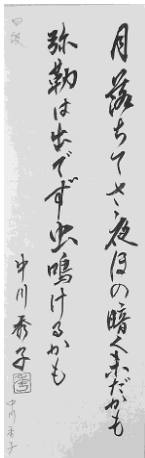 月落ちてさ夜ほの暗く未だかも
弥勒は出でず虫鳴けるかも
中川秀子
四段
中川秀子